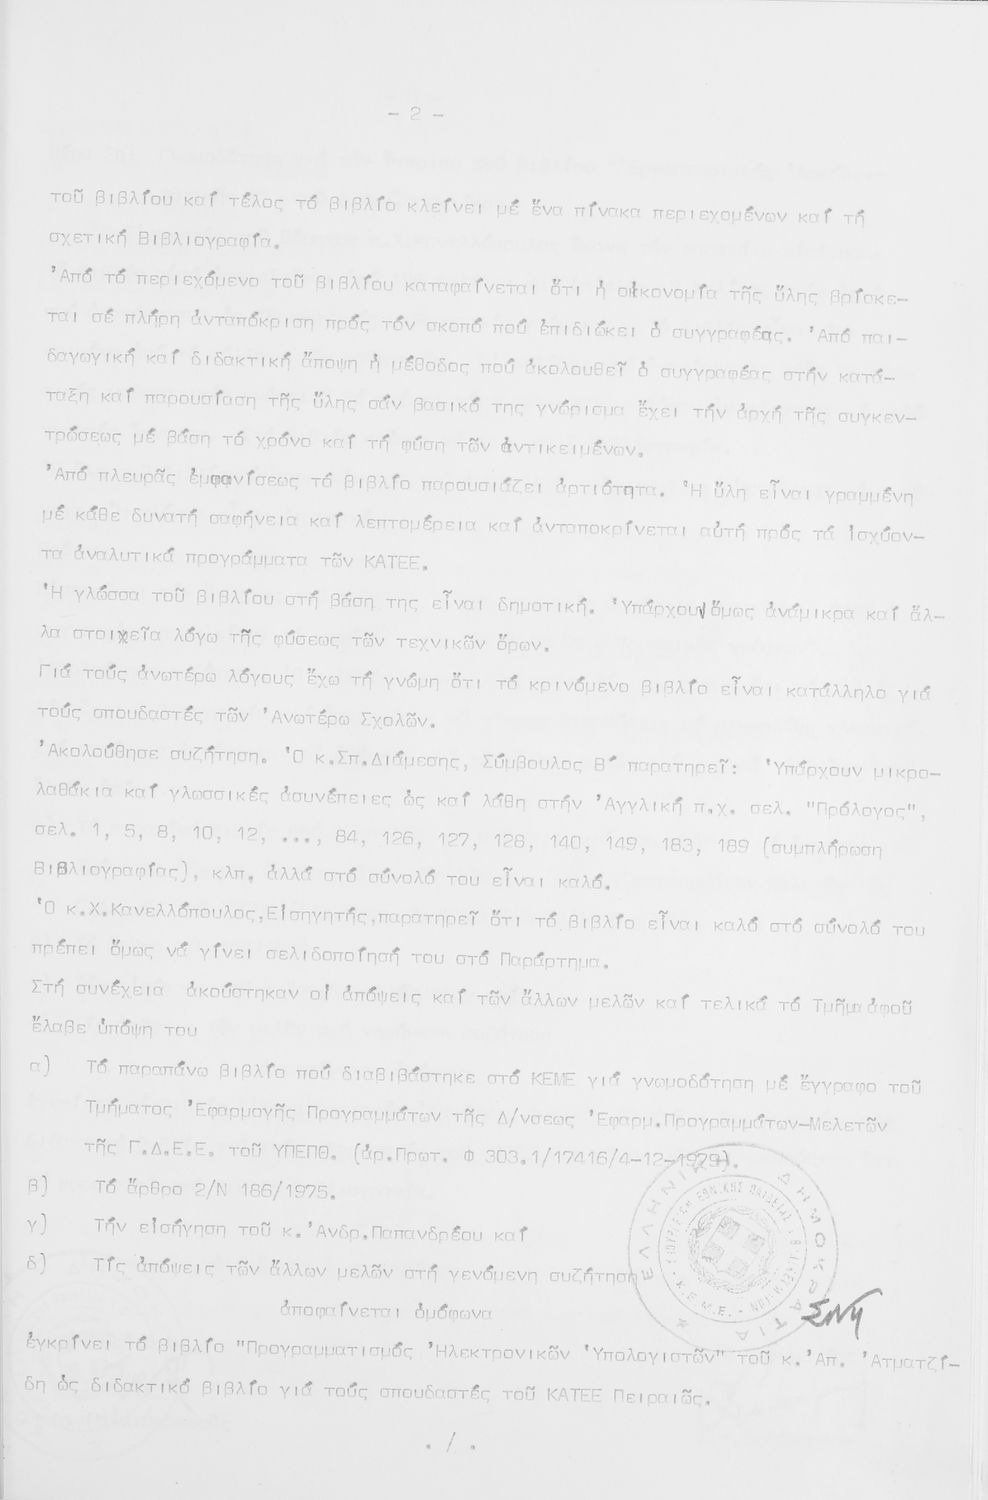 - 2 -
τοῦ βιβλίου καί τέλος τό βιβλίο κλείνει μέ ἕνα πίνακα περιεχομένων καί τή
σχετική Βιβλιογραφία.
Ἀπό τό περιεχόμενο τοῦ βιβλίου καταφαίνεται ὅτι ἡ οἰκονομία τῆς ὕλης βρίσκε-
ται σέ πλήρη ἀνταπόκριση πρός τόν σκοπό πού ἐπιδιώκει ὁ συγγραφέας. Ἀπό παι-
δαγωγική καί διδακτική ἄποψη ἡ μέθοδος πού ἀκολουθεῖ ὁ συγγραφέας στήν κατά-
ταξη καί παρουσίαση τῆς ὕλης σάν βασικό της γνώρισμα ἔχει τήν ἀρχή τῆς συγκεν-
τρώσεως μέ βάση τό χρόνο καί τή φύση τῶν ἀντικειμένων.
Ἀπό πλευρᾶς ἐμφανίσεως τό βιβλίο παρουσιάζει ἀρτιότητα. Ἡ ὕλη εἶναι γραμμένη
μέ κάθε δυνατή σαφήνεια καί λεπτομέρεια καί ἀνταποκρίνεται αὐτή πρός τά ἰσχύον-
τα ἀναλυτικά προγράμματα τῶν ΚΑΤΕΕ.
Ἡ γλώσσα τοῦ βιβλίου στή βάση της εἶναι δημοτική. Ὑπάρχουν ὅμως ἀνάμικρα καί ἄλ-
λα στοιχεῖα λόγω τῆς φύσεως τῶν τεχνικῶν ὅρων.
Γιά τούς ἀνωτέρω λόγους ἔχω τή γνώμη ὅτι τό κρινόμενο βιβλίο εἶναι κατάλληλο γιά
τούς σπουδαστές τῶν Ἀνωτέρω Σχολῶν.
Ἀκολούθησε συζήτηση. Ὁ κ.Σπ.Διάμεσης, Σύμβουλος Β΄ παρατηρεῖ: Ὑπάρχουν μικρο-
λαθάκια καί γλωσσικές ἀσυνέπειες ὡς καί λάθη στήν Ἀγγλική π.χ. σελ. "Πρόλογος",
σελ. 1, 5, 8, 10, 12, ..., 84, 126, 127, 128, 140, 149, 183, 189 (συμπλήρωση
Βιβλιογραφίας), κλπ. ἀλλά στό σύνολό του εἶναι καλό.
Ὁ κ.Χ.Κανελλόπουλος,Εἰσηγητής,παρατηρεῖ ὅτι τό βιβλίο εἶναι καλό στό σύνολό του
πρέπει ὅμως νά γίνει σελιδοποίησή του στό Παράρτημα.
Στή συνέχεια ἀκούστηκαν οἱ ἀπόψεις καί τῶν ἄλλων μελῶν καί τελικά τό Τμῆμα ἀφοῦ
ἔλαβε ὑπόψη του
α) Τό παραπάνω βιβλίο πού διαβιβάστηκε στό ΚΕΜΕ γιά γνωμοδότηση μέ ἔγγραφο τοῦ
Τμήματος Ἐφαρμογῆς Προγραμμάτων τῆς Δ/νσεως Ἐφαρμ.Προγραμμάτων-Μελετῶν
τῆς Γ.Δ.Ε.Ε. τοῦ ΥΠΕΠΘ. (ἀρ.Πρωτ. Φ 303.1/17416/4-12-1979).
β) Τό ἄρθρο 2/Ν 186/1975.
γ) Τήν εἰσήγηση τοῦ κ. Ἀνδρ.Παπανδρέου καί
δ) Τίς ἀπόψεις τῶν ἄλλων μελῶν στή γενόμενη συζήτηση
ΕΛΛΗΝΙΚΗ ΔΗΜΟΚΡΑΤΙΑ
Κ.Ε.Μ.Ε.
ἀποφαίνεται ὁμόφωνα
ἐγκρίνει τό βιβλίο "Προγραμματισμός Ἠλεκτρονικῶν Ὑπολογιστῶν" τοῦ κ. Ἀπ. Ἀτματζί-
δη ὡς διδακτικό βιβλίο γιά τούς σπουδαστές τοῦ ΚΑΤΕΕ Πειραιῶς.
. / .